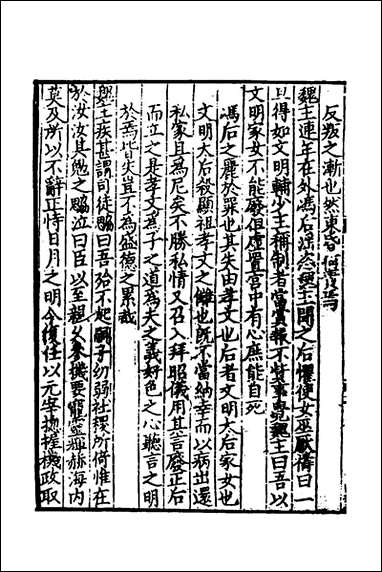 反叛之漸也然東昏何責焉
魏主連年在外馮后淫恣魏主聞之后懼使女巫厭禱曰一
旦得如文明輔少主稱制者當賞報不貲事覺魏主曰吾以
文明家女不能廢但虛置宮中有心庶能自死
馮后之麗於罪也其失由孝文也后者文明大后家女也
文明大后殺顯祖孝文之讎也既不當納幸而以病出還
私家且為尼矣不勝私情又召入拜昭儀用其言廢正后
而立之是孝文為子之道為夫之義好色之心聽言之明
於焉皆失豈不為盛德之累哉
魏主疾甚謂司徒勰曰吾殆不起嗣子幼弱社稷所倚惟在
於汝汝其勉之勰泣曰臣以至親久參機要寵靈輝赫海內
莫及所以不辭正恃日月之明今復任以元宰揔握機政取